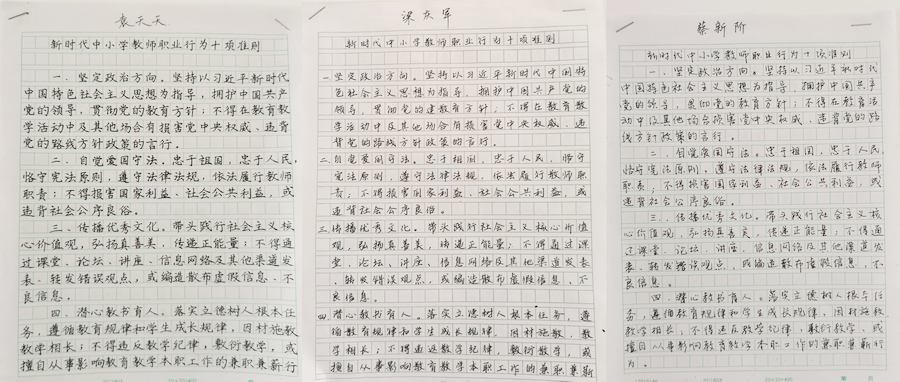 袁天天
新时代中小学教师职业行为十项准则
一、坚定政治方向。坚持以习近平新时代
中国特色社会主义思想为指导，拥护中国共产
党的领导，贯彻党的教育方针；不得在教育教
学活动中及其他场合有损害党中央权威、违背
党的路线方针政策的言行。
二、自觉爱国守法。忠于祖国，忠于人民，
恪守宪法原则，遵守法律法规，依法履行教师
职责；不得损害国家利益、社会公共利益，或
违背社会公序良俗。
三、传播优秀文化。带头践行社会主义核
心价值观，弘扬真善美，传递正能量；不得通
过课堂、论坛、讲座、信息网络及其他渠道发
表、转发错误观点，或编造散布虚假信息、不
良信息。
四、潜心教书育人。落实立德树人根本任
务，遵循教育规律和学生成长规律，因材施教，
教学相长；不得违反教学纪律，敷衍教学，或
擅自从事影响教育教学本职工作的兼职兼薪行
梁庆军
新时代中小学教师职业行为十项准则
一、坚定政治方向。坚持以习近平新时代中国特
色社会主义思想为指导，拥护中国共产党的
领导，贯彻党的教育方针；不得在教育教
学活动中及其他场合有损害党中央权威、违
背党的路线方针政策的言行。
二、自觉爱国守法。忠于祖国，忠于人民，恪守
宪法原则，遵守法律法规，依法履行教师职
责；不得损害国家利益，社会公共利益，或
违背社会公序良俗。
三、传播优秀文化。带头践行社会主义核心价值
观，弘扬真善美，传递正能量；不得通过课
堂，论坛，讲座、信息网络及其他渠道发表
、转发错误观点，或编造散布虚假信息、不
良信息。
四、潜心教书育人。落实立德树人根本任务，遵
循教育规律和学生成长规律，因材施教，教
学相长；不得违反教学纪律，敷衍教学，或
擅自从事影响教育教学本职工作的兼职兼薪
蔡新阶
新时代中小学教师职业行为十项准则
一、坚定政治方向。坚持以习近平新时代
中国特色社会主义思想为指导，拥护中国共产
党的领导，贯彻党的教育方针；不得在教育活
动中及其他场合损害党中央权威、违背党的路
线方针政策的言行。
二、自觉爱国守法。忠于祖国，忠于人民，
恪守宪法原则，遵守法律法规，依法履行教师
职责；不得损害国家利益，社会公共利益，或
违背社会公序良俗。
三、传播优秀文化。带头践行社会主义核
心价值观，弘扬真善美，传递正能量；不得通
过课堂、论坛、讲座、信息网络及其他渠道发
表、转发错误观点，或编造散布虚假信息，不
良信息。
四、潜心教书育人。落实立德树人根本任
务，遵循教育规律和学生成长规律，因材施教
教学相长；不得违反教学纪律，敷衍教学，或
擅自从事影响教育教学本职工作的兼职兼薪行
为。